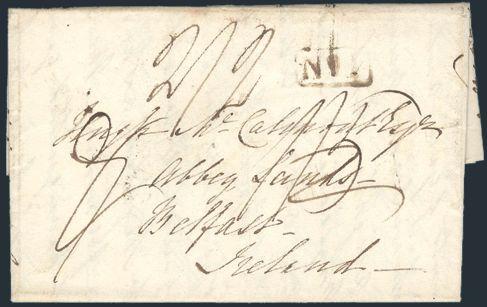 2/2
No 1
Hugh Mc Calmont Esqr
Abbey Lands
Belfast
Ireland